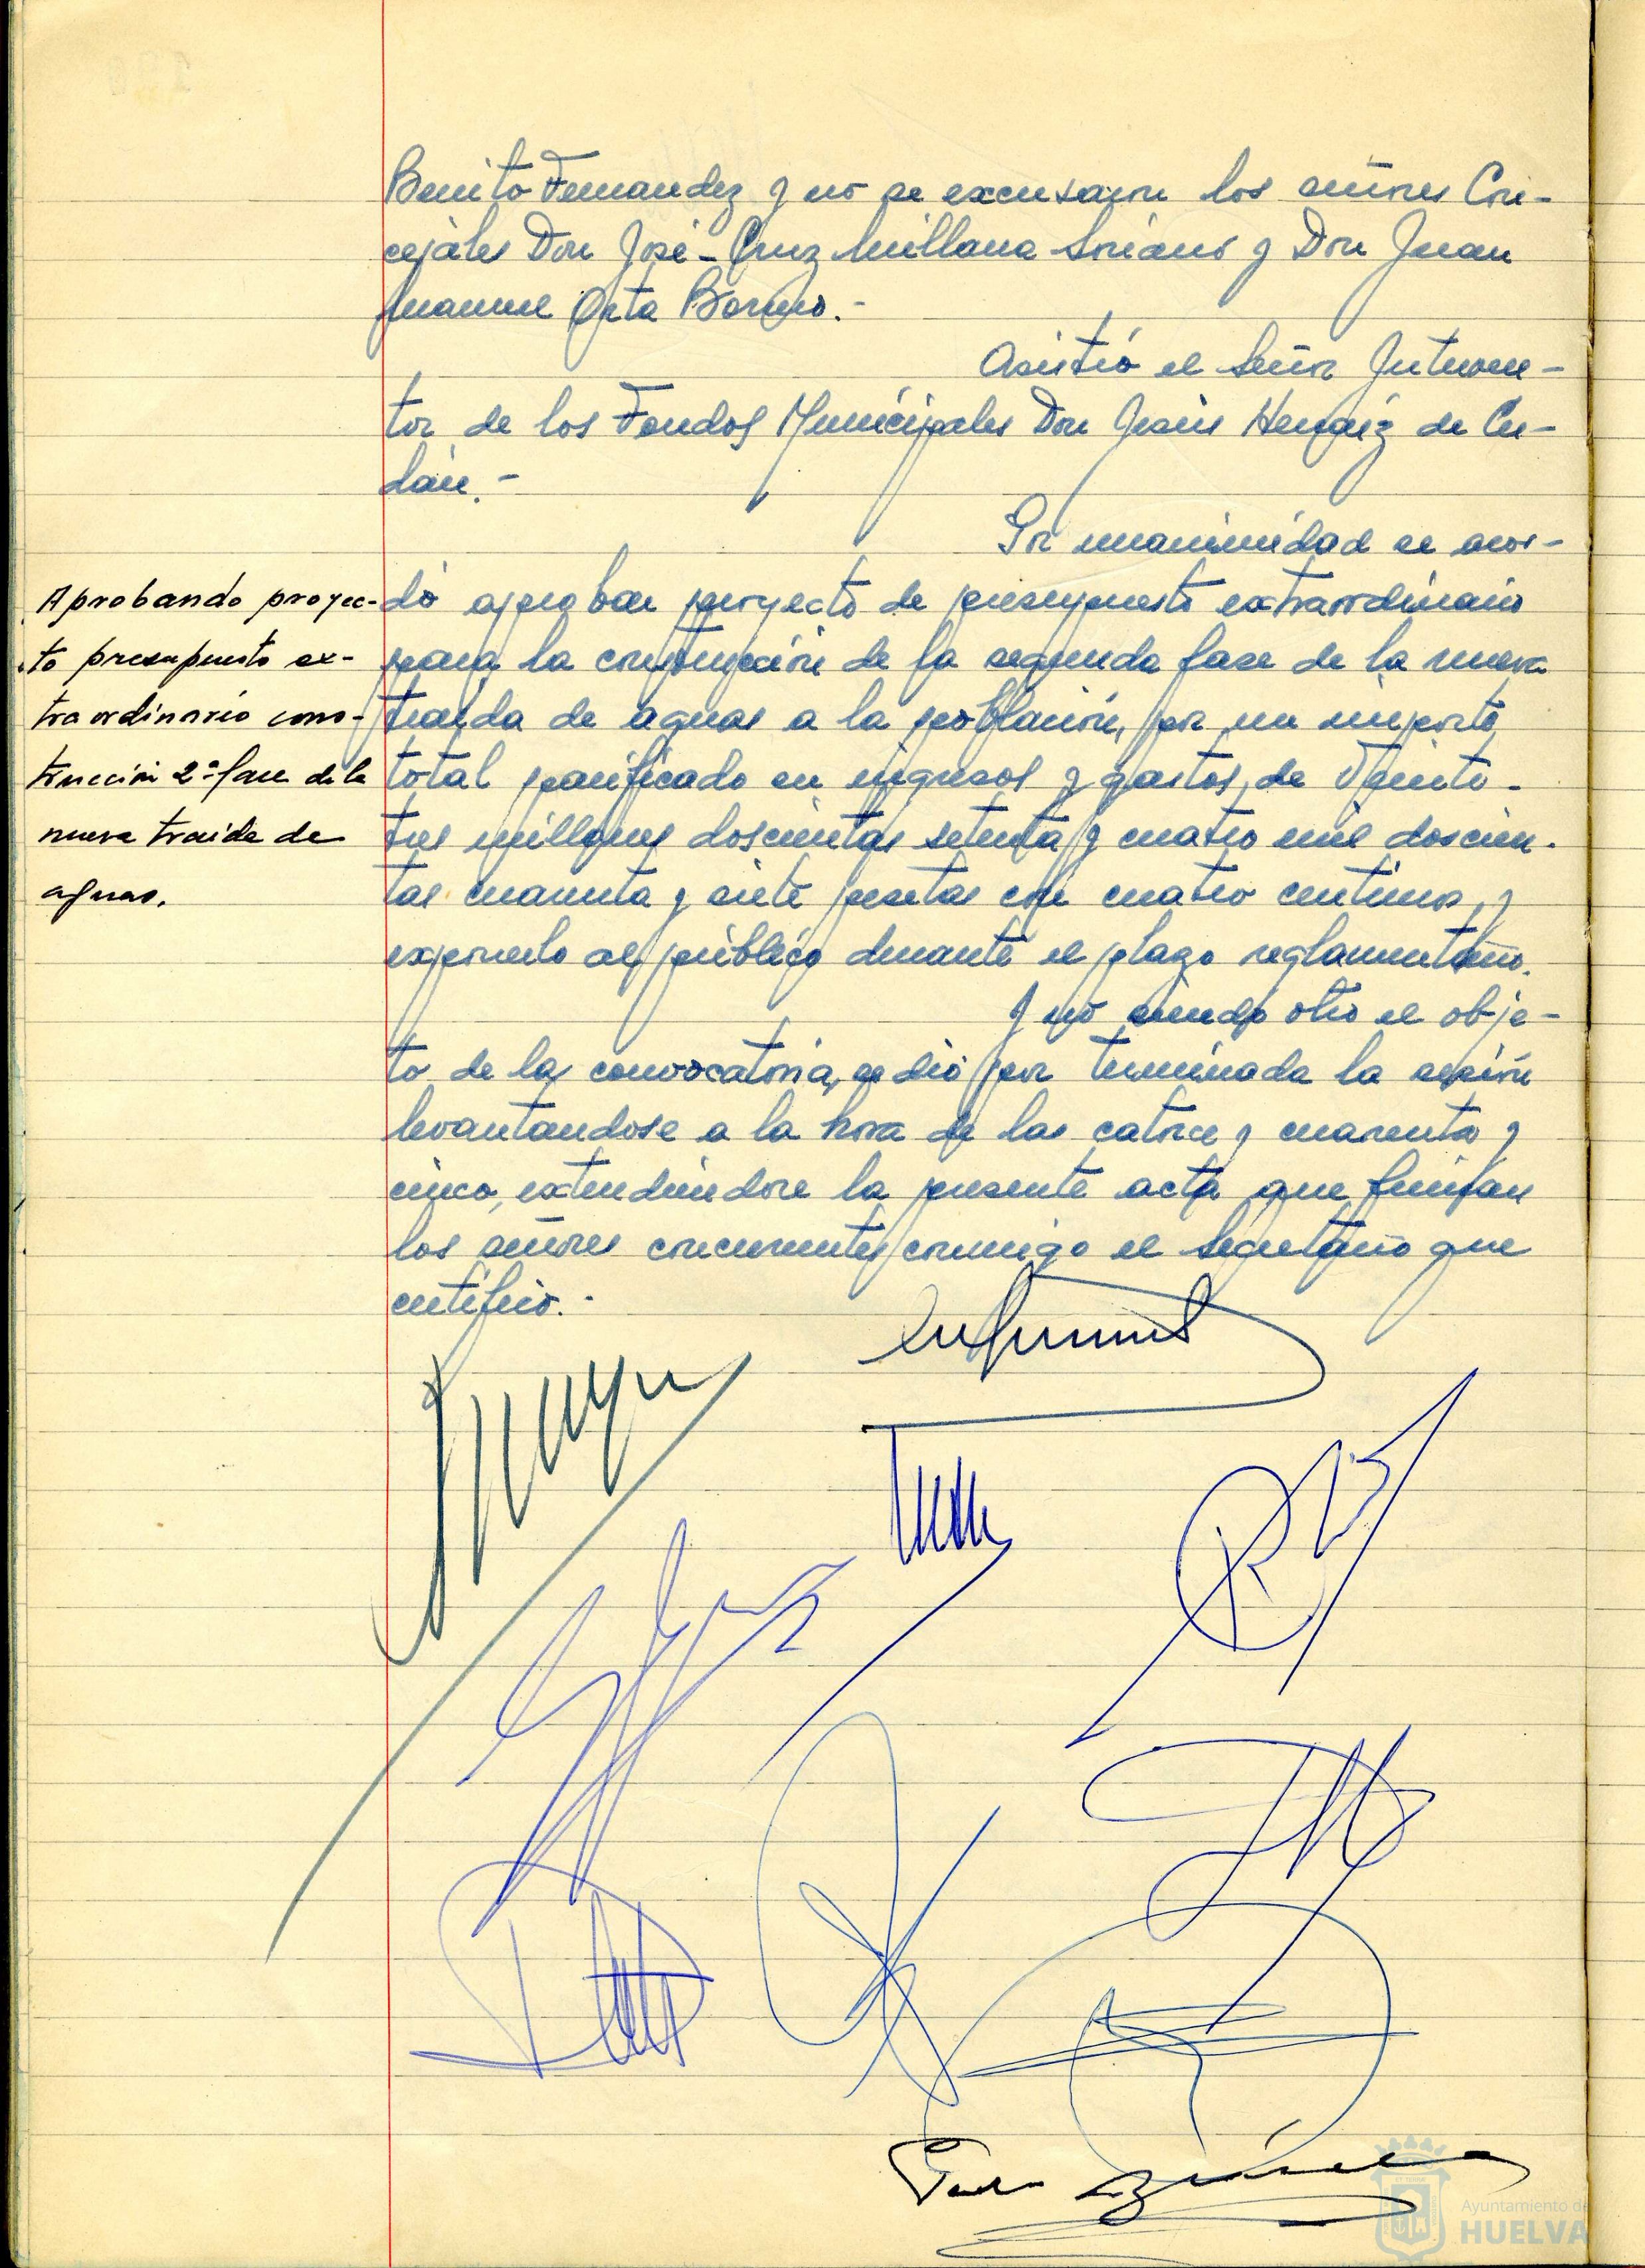 Benito Fernandez y no se excusaron los señores Con-
cejales Don José-Cruz Millana Soriano y Don Juan
Manuel Orta Borrero.-
Asistió el Señor Interven-
tor de los Fondos Municipales Don Jesús Hernáiz de
.-
Por unanimidad se acor-
Aprobando proyec-
to presupuesto ex-
traordinario cons-
trucción 2ª fase de la
nueva traida de
aguas.
dó aprobar proyecto de presupuesto extraordinario
para la construcción de la segunda fase de la nueva
traida de aguas a la población, por un importe
total panificado en ingresos y gastos, de Veinti-
tres millones doscientas setenta y cuatro mil doscien-
tas cuarenta y siete pesetas con cuatro centimos, y
exponerlo al público durante el plazo reglamentario.
Y no siendo otro el obje-
to de la convocatoria, se dió por terminada la sesión
levantandose a la hora de las catorce y cuarenta y
cinco, extendiendose la presente acta que firman
los señores concurrentes conmigo el Secretario que
certifico.-
Ayuntamiento de
HUELVA